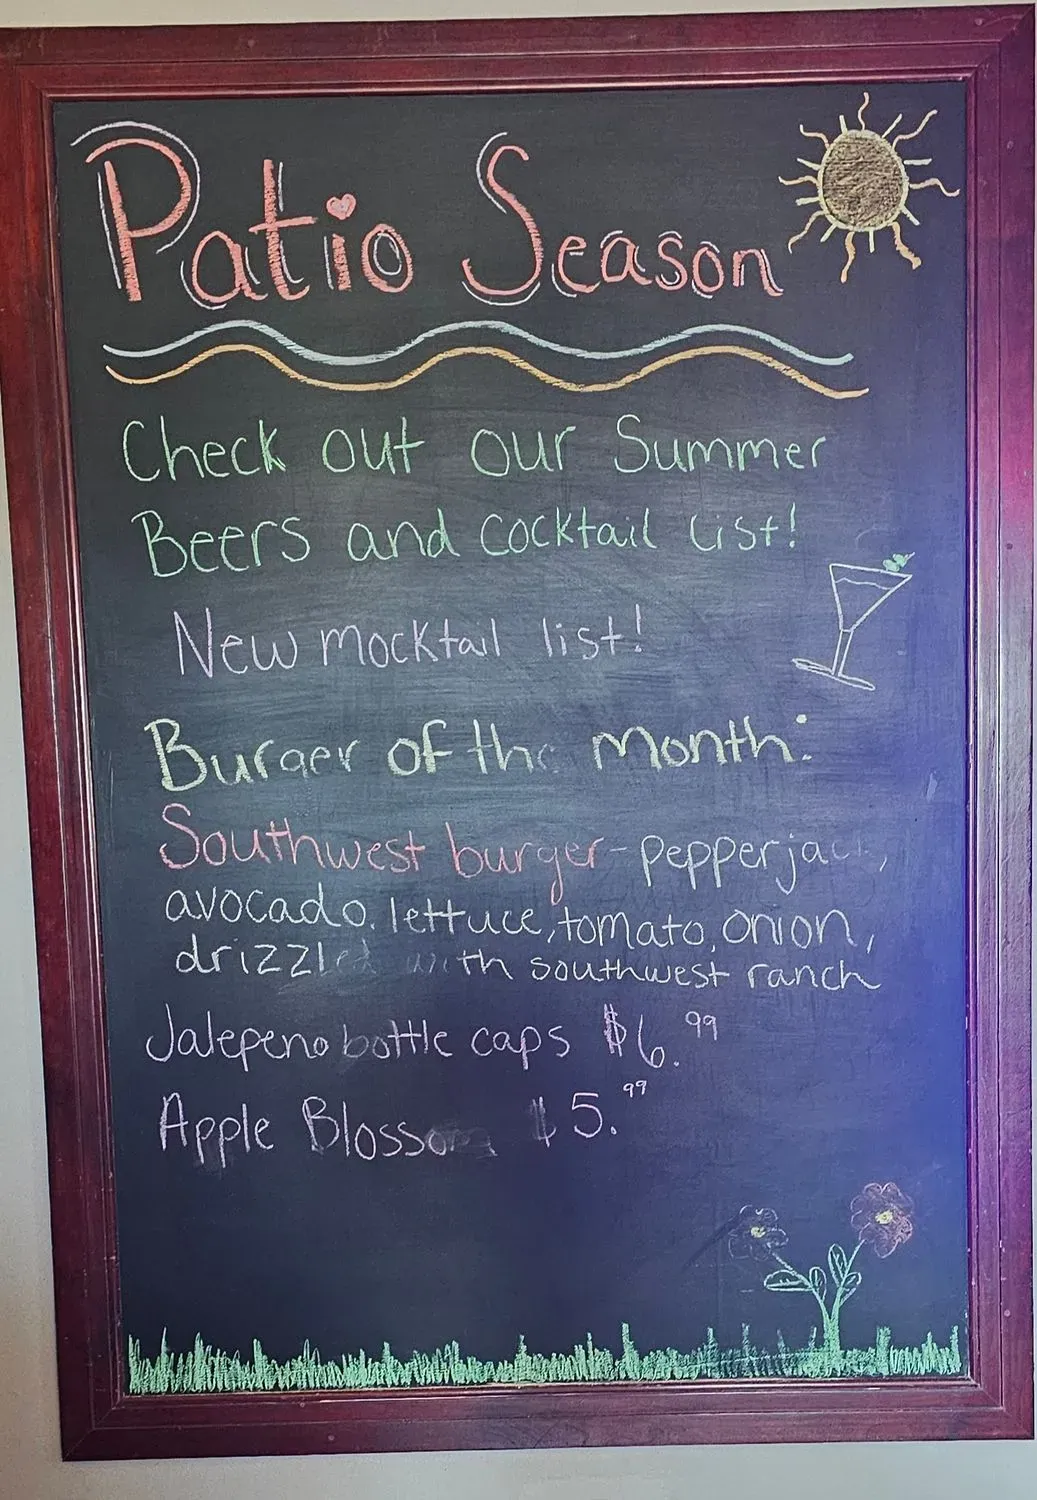 Patio Season
Check out our Summer
Beers and cocktail list!
New mocktail list!
Burger of the month:
Southwest burger - pepperjack,
avocado, lettuce, tomato, onion,
drizzled with southwest ranch
Jalepeno bottle caps $6.99
Apple Blossom $5.99